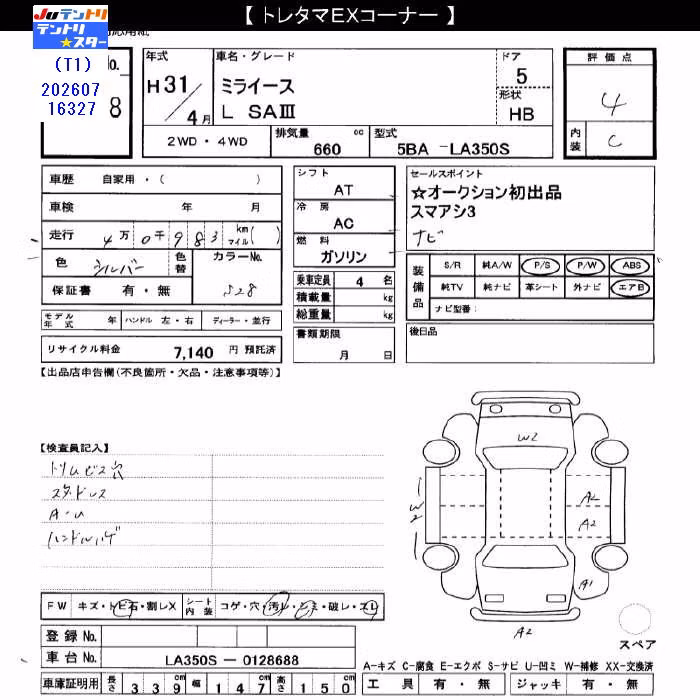 【 トレタマEXコーナー 】
Juテントリ
テントリ★スター
(T1)
202607
16327
No.
8
年式
H 31/4月
車名・グレード
ミライース
L SAⅢ
ドア
5
形状
HB
評価点
4
内装 C
2WD・4WD
排気量 660 cc
型式 5BA -LA350S
車歴 自家用・( )
車検 年 月
走行 4万0千983 km マイル( )
色 シルバー 色替 カラーNo. S28
保証書 有・無
モデル年式 年 ハンドル 左・右 ディーラー・並行
リサイクル料金 7,140 円 預託済
シフト AT
冷房 AC
燃料 ガソリン
乗車定員 4 名
積載量 kg
総重量 kg
書類期限
月 日
セールスポイント
☆オークション初出品
スマアシ3
ナビ
装備品 S/R 純A/W P/S P/W ABS
純TV 純ナビ 革シート 外ナビ エアB
ナビ型番:
後日品
【出品店申告欄(不良箇所・欠品・注意事項等)】
【検査員記入】
トリムビス穴
スタッドレス
A-U
ハンドルハゲ
W2
W2
A2
A2
A1
A2
スペア
FW キズ・トビ石・割レX シート内装 コゲ・穴・汚レ・シミ・破レ・スレ
登録No.
車台No. LA350S - 0128688
車庫証明用 長さ 339cm 幅 147cm 高さ 150cm
A-キズ C-腐食 E-エクボ S-サビ U-凹ミ W-補修 XX-交換済
工具 有・無 ジャッキ 有・無